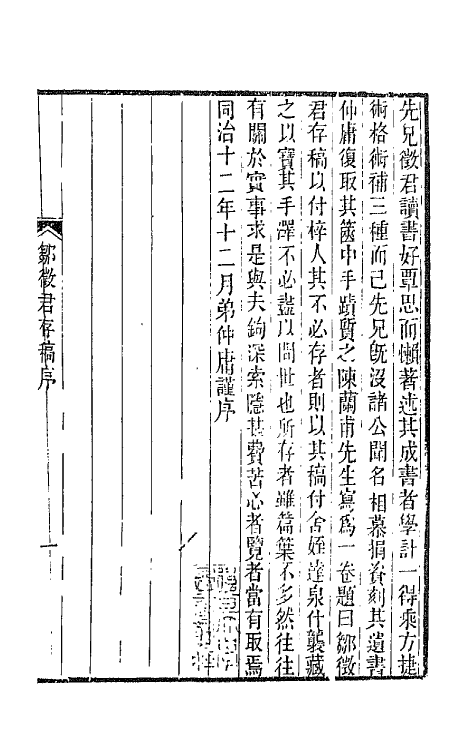 先兄徵君讀書好覃思而懶著述其成書者學計一得乘方捷
術格術補三種而已先兄旣沒諸公聞名相慕捐資刻其遺書
仲庸復取其篋中手蹟質之陳蘭甫先生寫爲一卷題曰鄒徵
君存稿以付梓人其不必存者則以其稿付舍姪達泉什襲藏
之以寶其手澤不必盡以問世也所存者雖篇葉不多然往往
有關於實事求是與夫鉤深索隱甚費苦心者覽者當有取焉
同治十二年十二月弟仲庸謹序
鄒徵君存稿序
一